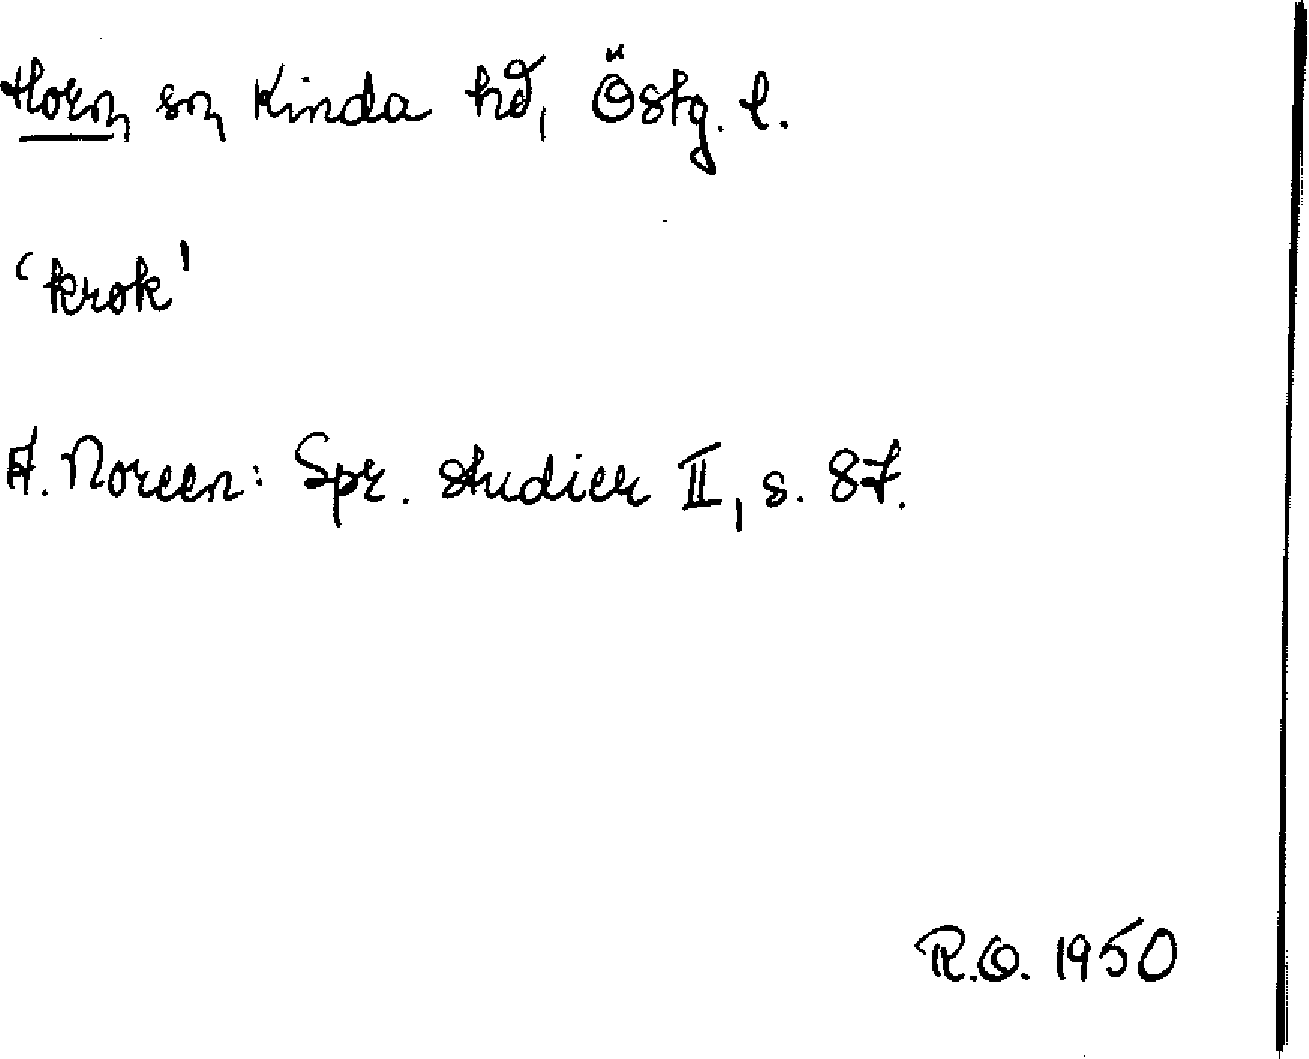 Horn, sn, Kinda hd, Östg. l.
'krok'
A. Noreen: Spr. studier II, s. 87.
R.O. 1950